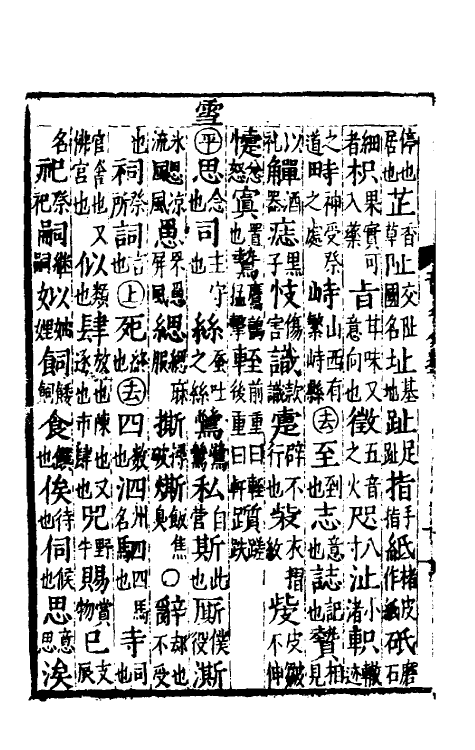 停也居也芷香草阯交阯國名址基址地趾足趾指手指紙楮皮作紙砥磨石
細者枳果實可入藥旨甘味又意向也徵五音之火咫八沚小渚軹轍迹
之道畤神受祭之處峙山西有繁峙縣去至到也志意也誌記也贄相見
以禮觶酒器痣黑子忮傷害識款識躄不行也皮皺不伸
懥忿怒寘置也鷙鷹鷙猛擊輊前重曰輊後重曰軒躓蹉跌
雪
平思念也司主守也絲蚕吐之絲鷥鷺鷥私自營斯此也廝僕役澌
冰流颸涼風罳罘罳屏風緦緦麻服撕破飯焦臭○辭却也不受
也祠祭所詞言也上死終也去四數也泗州名駟四馬寺司也
官舍也又佛宮也似以類也肆放也陳也又遂也市肆也兕野牛賜賞物巳支辰
名祀祭祀嗣繼嗣姒娣姒飼餧飼食饌也俟待也伺候也思意思涘